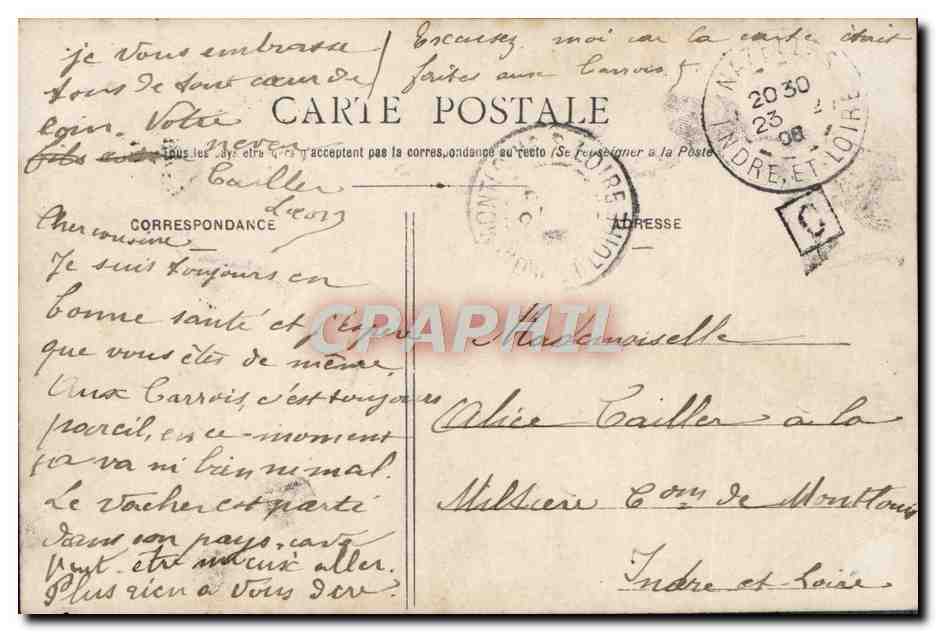 je vous embrasse
tous de tout cœur de
loin. Votre
neveu
Cailler
Léon
Excusez moi car la carte était
faites aux Carrois
CARTE POSTALE
Tous les pays étrangers n'acceptent pas la correspondance au recto (Se renseigner à la Poste
CORRESPONDANCE
ADRESSE
Cher cousine
Je suis toujours en
bonne santé et j'espère
que vous êtes de même
Aux Carrois, c'est toujours
pareil, en ce moment
sa va ni bien ni mal.
Le vacher est parti
dans son pays, cava
peut être mieux aller.
Plus rien a vous dire.
Mademoiselle
Alice Cailler à la
Miltière Com de Montlouis
Indre et Loire
20 30
23
08
INDRE-ET-LOIRE
MONTLOUIS
LOIRE
C
CPAPHIL